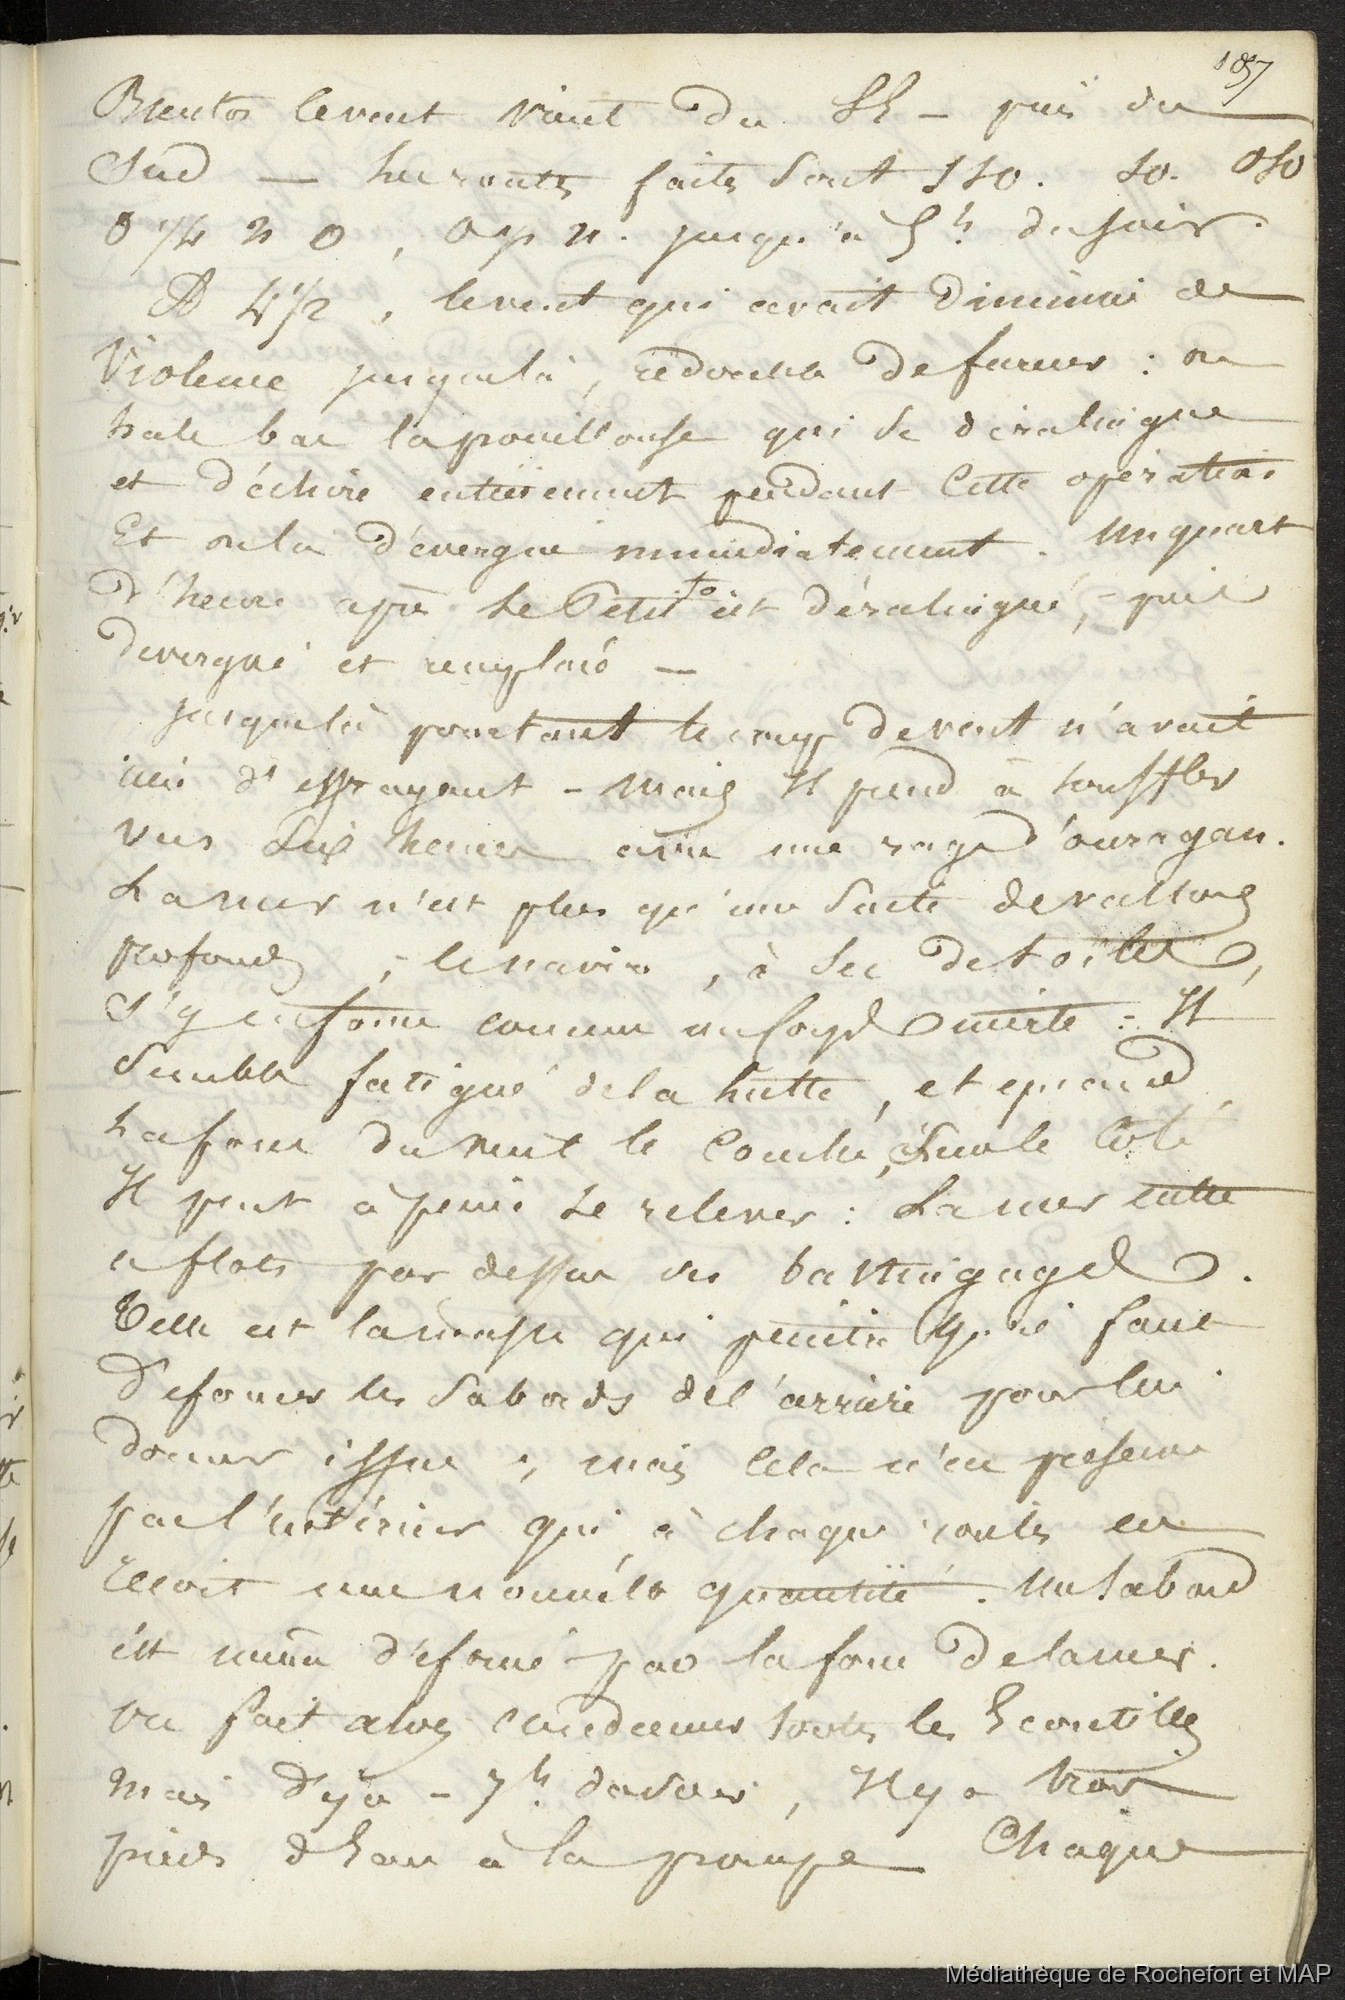 187
Bientôt le vent vient du SE – puis du
Sud — les routes faites sont SSO. SO. OSO
O 1/4 N O, jusqu'à 5h. du soir.
A 4 1/2, le vent qui avait diminué de
Violence jusque là, redouble de fureur : on
hale bas la pouillouse qui se déralingue
et déchire entièrement pendant cette opération
Et on la dévergue immédiatement. Un quart
d'heure après le Petit fo est déralingué, – puis
devergué et remplacé —
jusque là pourtant le coup de vent n'avait
rien d'effrayant – mais Il prend à souffler
vers six heures avec une rage d'ouragan.
La mer n'est plus qu'une suite de vallons
profonds, le navire, à sec de toiles,
s'y enfonce comme un corps inerte : Il
semble fatigué de la lutte, et quand
la force du vent le couche, sur le côté
Il peut à peine se relever : La mer entre
a flots par dessus les bastingages.
Telle est la masse qui pénètre qu'il faut
défoncer les sabords de l'arrière pour lui
donner issue ; mais cela n'en préserve
pas l'intérieur qui, à chaque roulis en
reçoit une nouvelle quantité. Un sabord
est même défoncé par la force de la mer.
on fait alors condamner toutes les Ecoutilles
Mais déjà – 7h. du soir, Il y a trois
pieds d'Eau à la pompe Chaque
Médiathèque de Rochefort et MAP